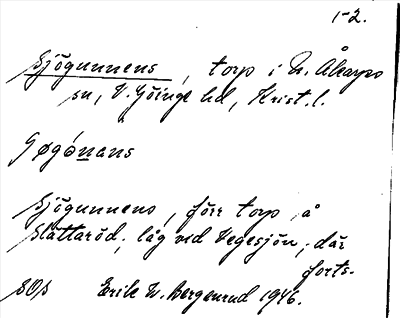 1-2.
Sjögunnens, torp i N. Åkarps
sn, V. Göinge hd, Krist. l.
Søgónans
Sjögunnens, förr torp å
Slättaröd; låg vid Vegesjön; där
forts.
SOS Erik W. Bergenrud 1946.